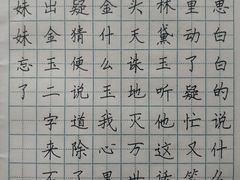 思白白的说什么
里动了疑忙又笑
林黛玉听他这话
头天诛地灭万世
金什么玉我心里
疑猜便说道除了
出金玉二字来不
妹妹忘了